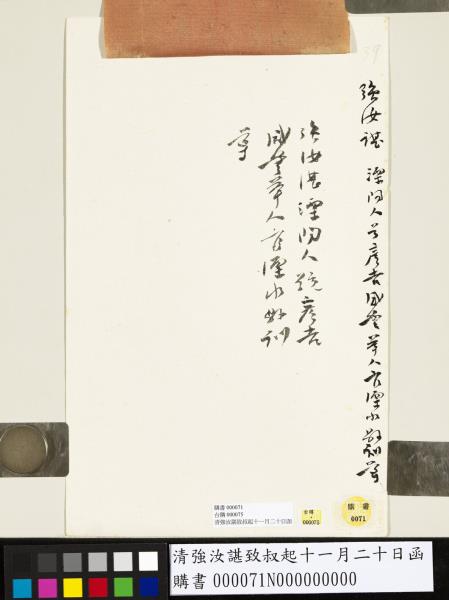 39
強汝諶 溧陽人 号彥吉 咸豐舉人 官溧水縣訓導
強汝諶溧陽人號彥吉
咸豐舉人官溧水縣訓
導
購書 000071
台購 000075
清強汝諶致叔起十一月二十日函
台購
000075
購書
0071
清強汝諶致叔起十一月二十日函
購書 000071N000000000